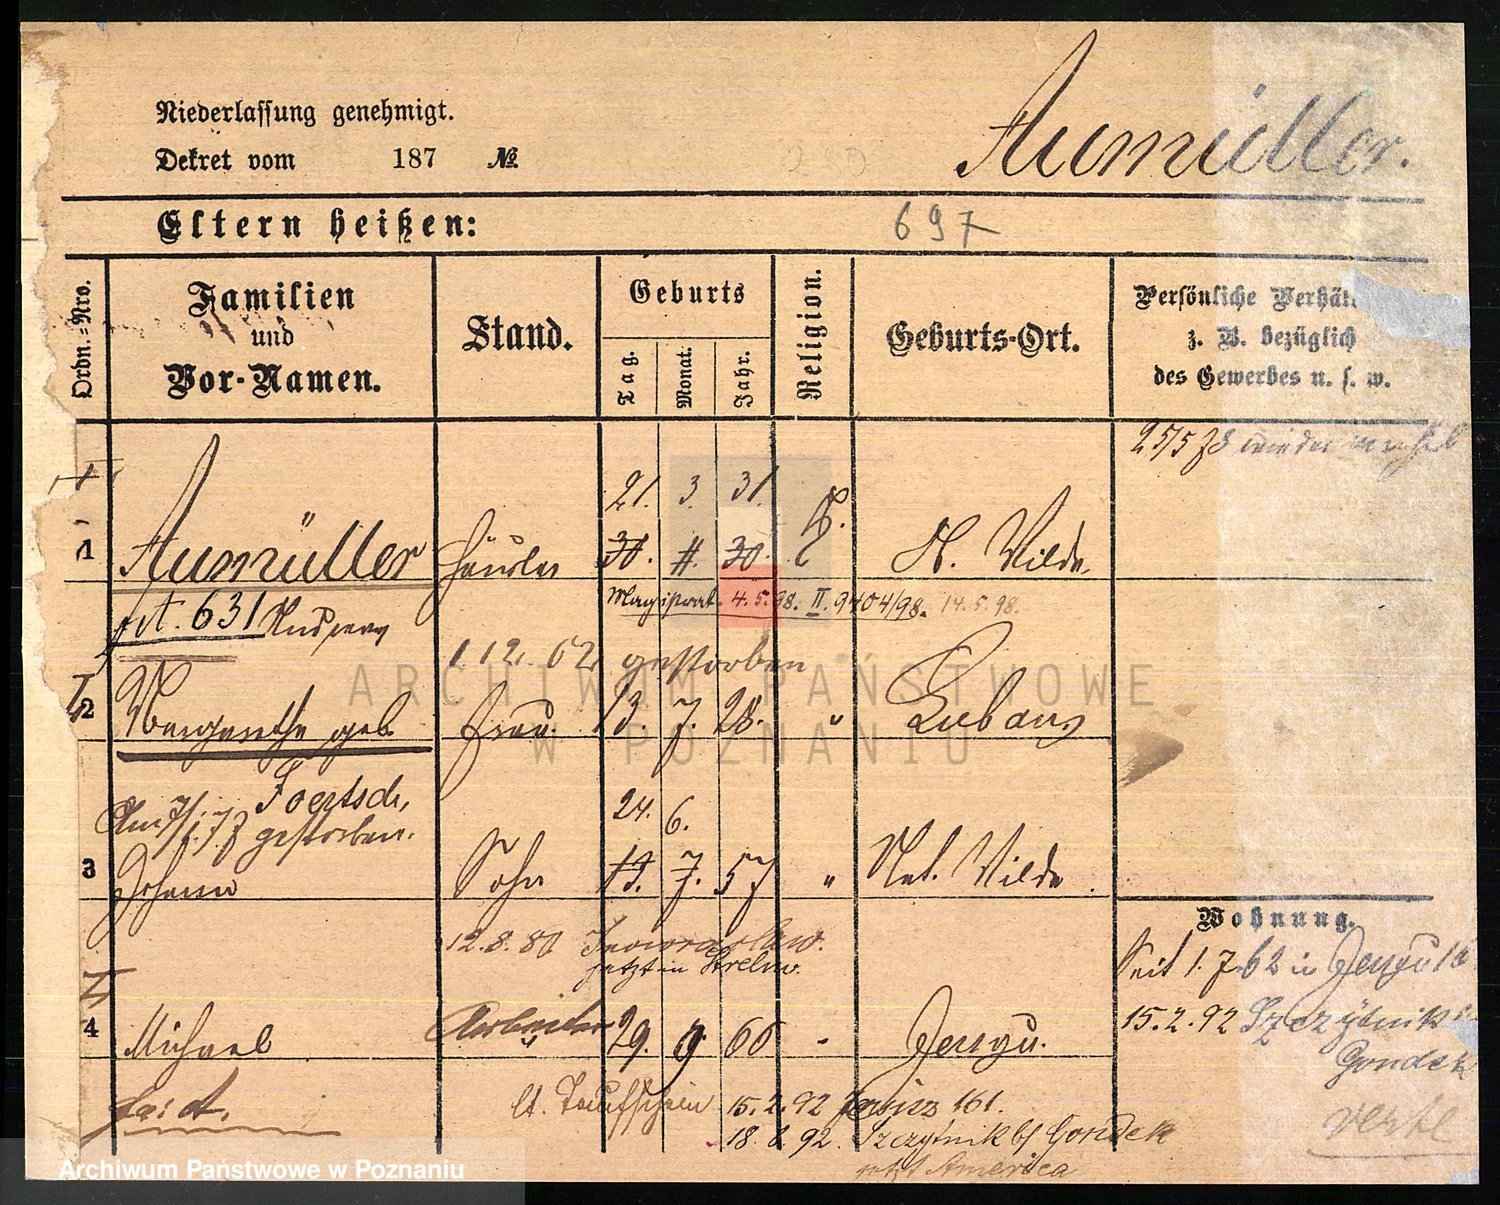 Aumüller.
Niederlassung genehmigt.
Dekret vom 187 №
Eltern heißen:
697
Ordn.=Nro.
Familien und Vor-Namen.
Stand.
Geburts
Tag. Monat. Jahr.
Religion.
Geburts-Ort.
Persönliche Verhält
z. B. bezüglich
des Gewerbes u. s. w.
25/5 78
21. 3. 31.
1 Aumüller Häusler 30. 11. 30. St. Wilda
Magistrat. 4.5.98. II. 9404/98. 14.5.98.
fct. 631 Andreas
1 12. 62 gestorben
2 Margarethe geb Frau. 13. 7. 28. " Luban
Foertsch,
Am 7/1. 73 gestorben.
24. 6.
3 Johann Sohn 13. 7. 57 " Nat. Wilda
Wohnung.
12.8.80 Inowraclaw.
jetzt in Strelno.
Seit 1.7.62 in
4 Michael Arbeiter 29. 9. 66
15.2.92 Szczytnik
Gondek
fct.
lt. Taufschein 15.2.92 161.
18.8.92. Szczytnik b/ Gondek
jetzt America
verte
ARCHIWUM PAŃSTWOWE
W POZNANIU
Archiwum Państwowe w Poznaniu